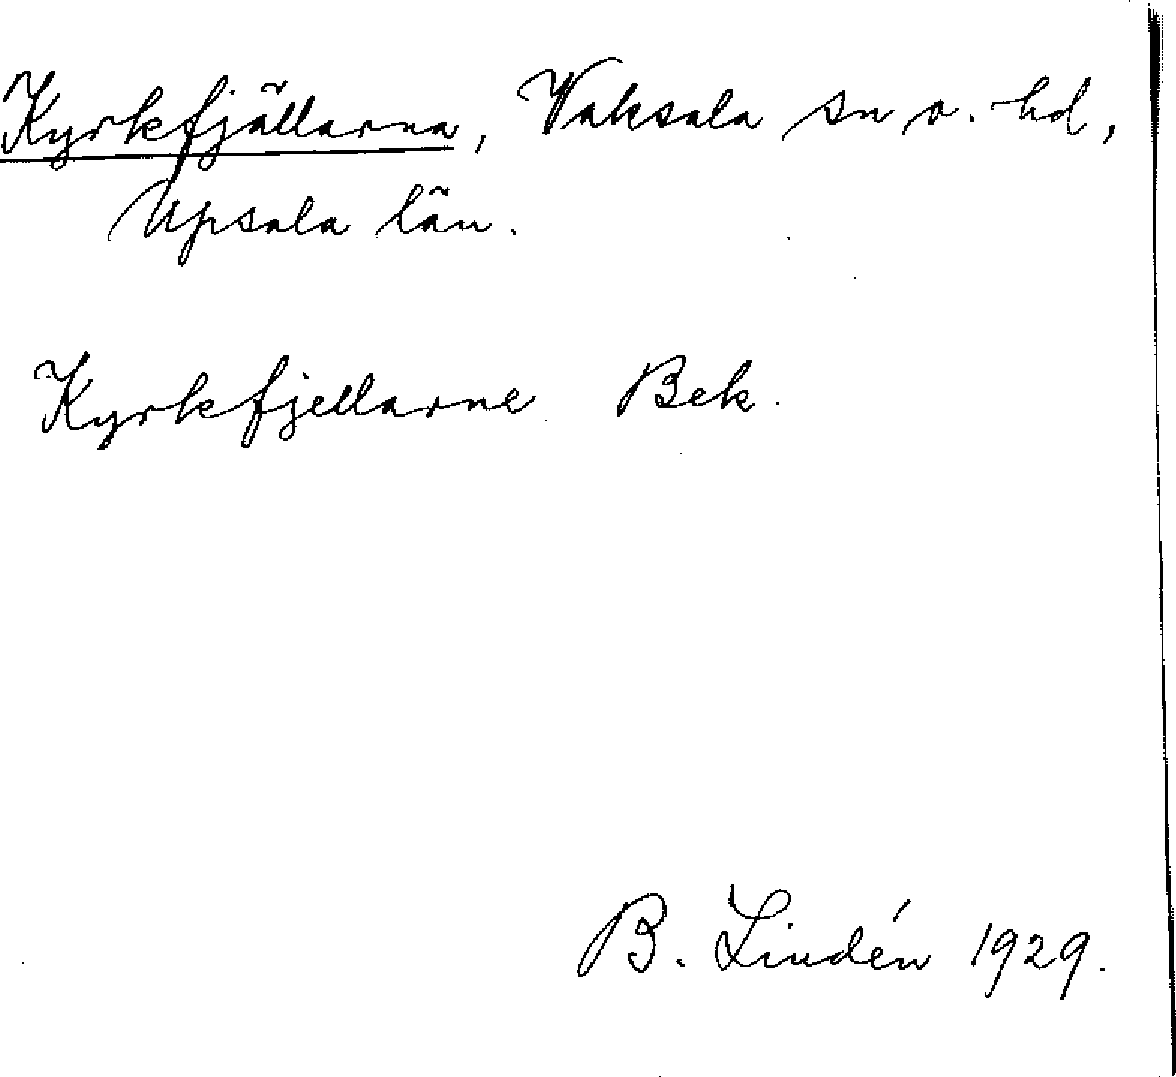 Kyrkfjällarna, Vaksala sn o. hd,
Upsala län.
Kyrkfjellarne Bek.
B. Lindén 1929.